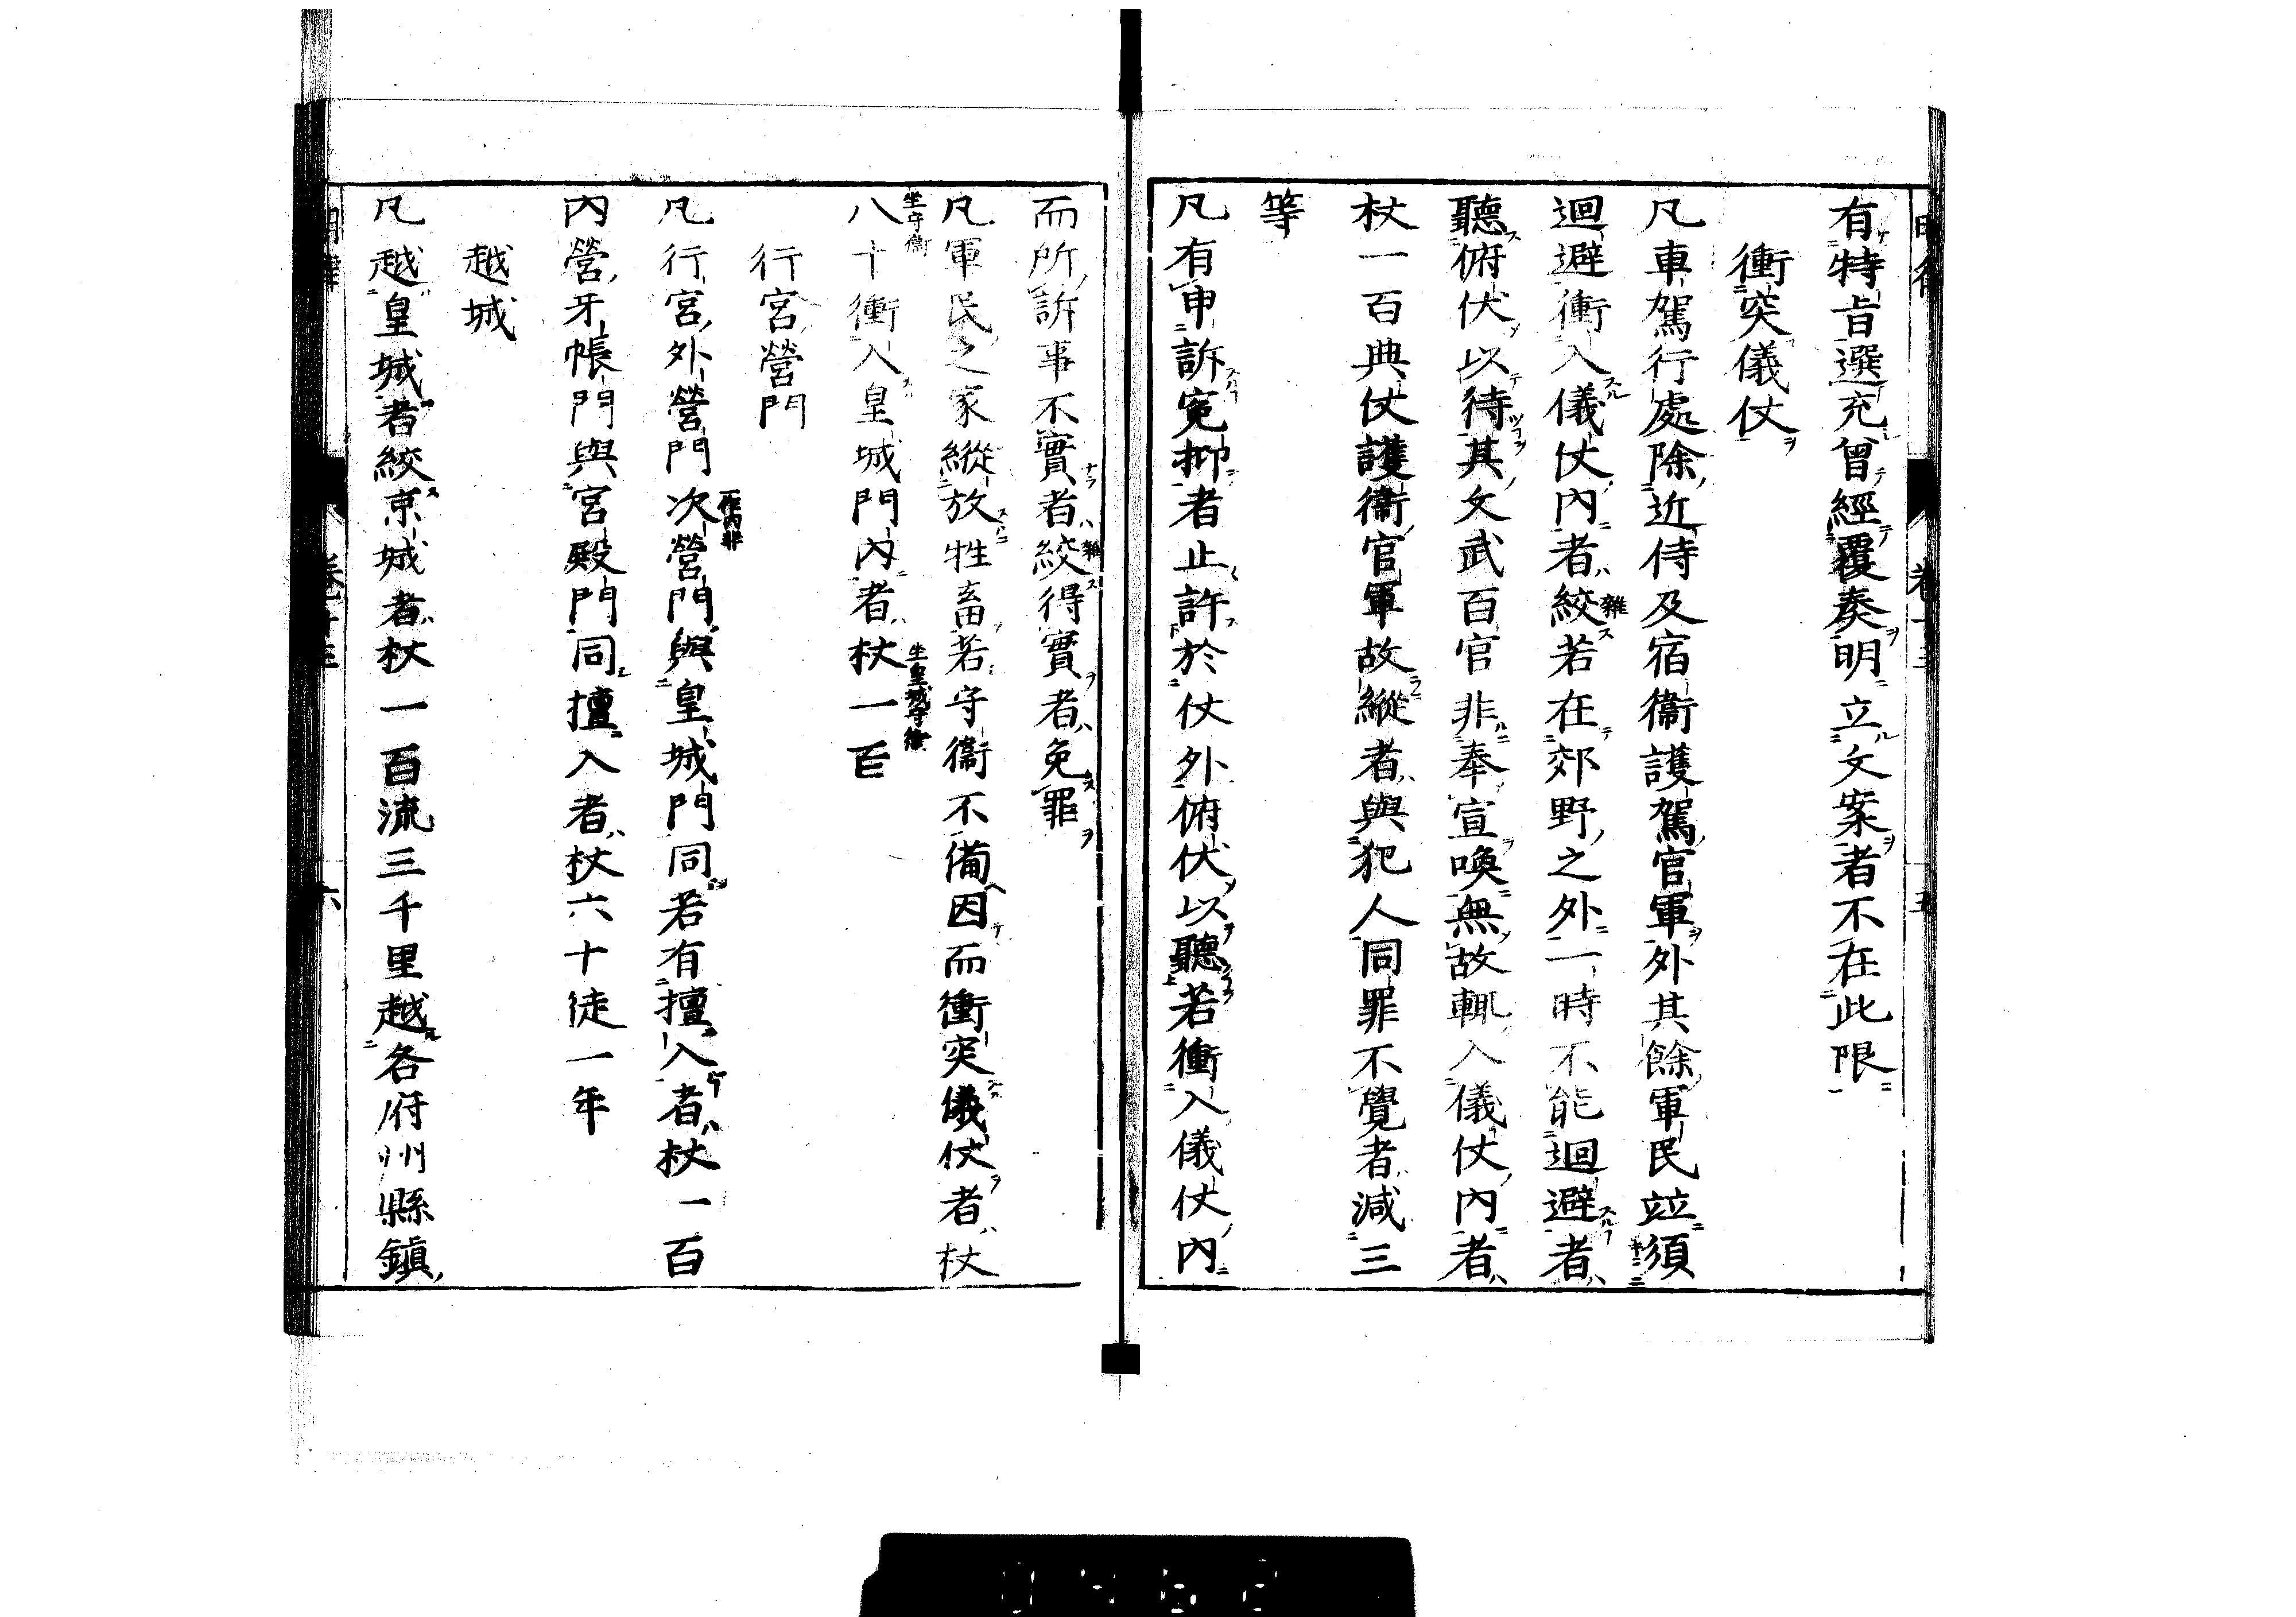 有特旨選充曾經覆奏明立文案者不在此限
衝突儀仗
凡車駕行處除近侍及宿衞護駕官軍外其餘軍民竝須
迴避衝入儀仗內者絞雜若在郊野之外一時不能迴避者
聽俯伏以待其文武百官非奉宣喚無故輒入儀仗內者
杖一百典仗護衞官軍故縱者與犯人同罪不覺者減三
等
凡有申訴寃抑者止許於仗外俯伏以聽若衝入儀仗內
而所訴事不實者絞雜得實者免罪
凡軍民之家縱放牲畜若守衞不備因而衝突儀仗者杖
坐守衞
八十衝入皇城門內者杖一百
坐皇城守衞
行宮營門
凡行宮外營門次營門與皇城門同若有擅入者杖一百
一作內非
內營牙帳門與宮殿門同擅入者杖六十徒一年
越城
凡越皇城者絞京城者杖一百流三千里越各府州縣鎮
六